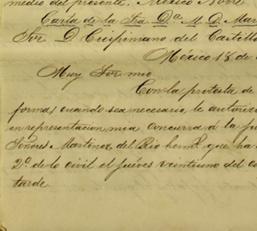 medio del presente, México Nov.e
Carta de la Sra. Dª. M. D. Mar
Sor. D. Crispiniano del Castillo
México 18 de
Muy Sor. mio
Con la protesta de
formas cuando sea necesario, le autorizo
en representacion mia concurra á la
Señores Martinez del Rio herm.s que ha
2º. de lo civil el juéves veintiuno del co
tarde.